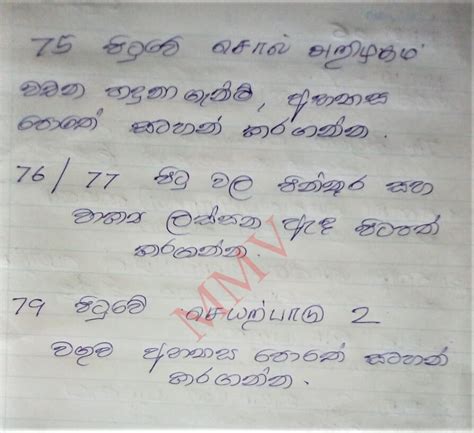 75 පිටුවේ சொல் அறிமுகம்
වචන හඳුනාගැනීම, අභ්‍යාස
පොතේ සටහන් කරගන්න.
76/77 පිටු වල පින්තූර සහ
වාක්‍ය ලස්සන ඇඳ පිටපත්
කරගන්න.
79 පිටුවේ செயற்பாடு 2
වගුව අභ්‍යාස පොතේ සටහන්
කරගන්න.
MMV